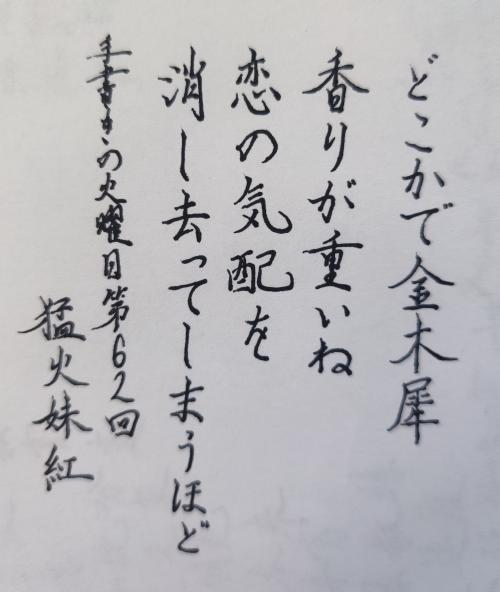 どこかで金木犀
香りが重いね
恋の気配を
消し去ってしまうほど
手書きの火曜日第62回
猛火妹紅